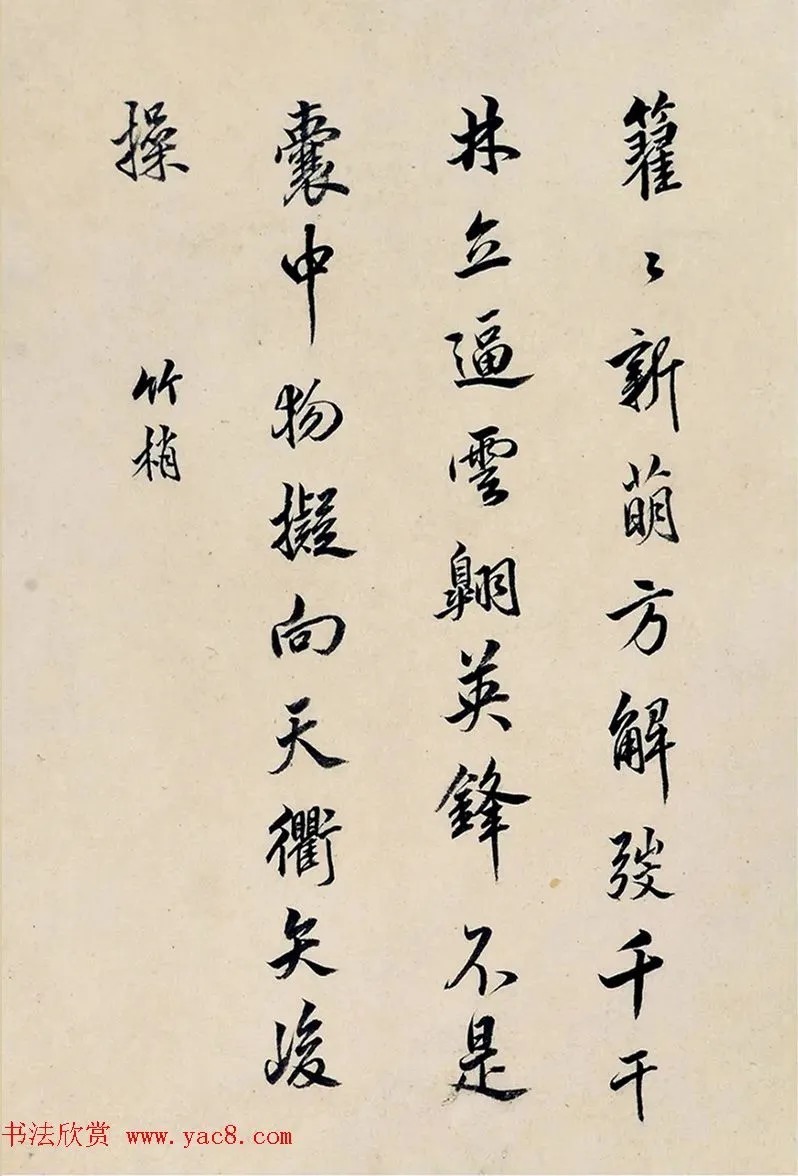 籊〻新萌方解弢千干
林立逼雲翺英鋒不是
囊中物擬向天衢矢峻
操
竹梢
书法欣赏 www.yac8.com